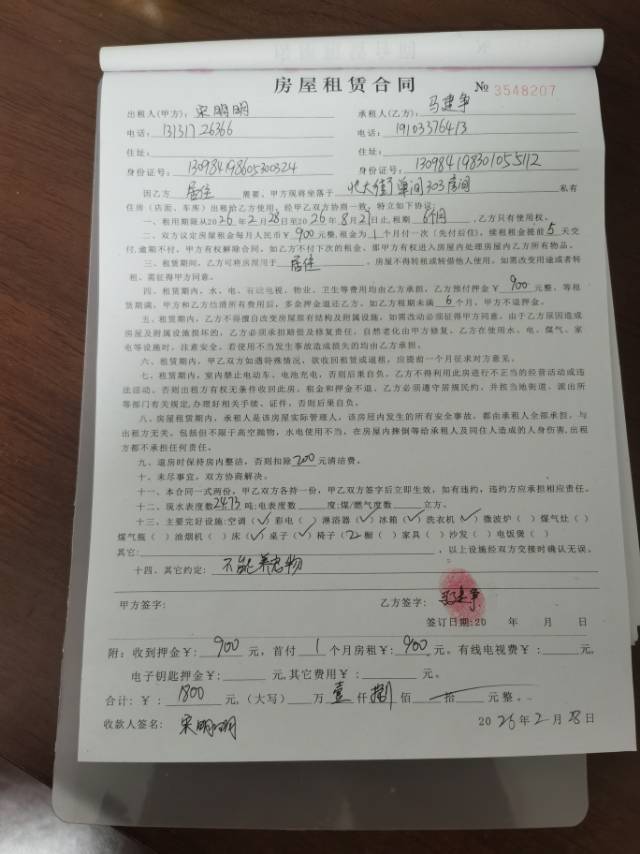 房屋租赁合同 № 3548207
出租人(甲方)：宋明明 承租人(乙方)：马建争
电话：13131726366 电话：19103376413
住址： 住址：
身份证号：130984198605300324 身份证号：130984198301055112
因乙方 居住 需要，甲方现将坐落于 北大街 单间303房间 私有
住房（店面、车库）出租给乙方使用，经甲乙双方协商一致，特立如下协议：
一、租用期限从2026年2月28日至2026年8月 日止，租期 6个月 ，乙方只有使用权。
二、双方议定房屋租金每月人民币￥900元整，租金为1个月付一次（先付后住），续租租金提前5天交
付，逾期不付，甲方有权解除合同。如乙方不付下次的租金，那甲方有权进入房屋内处理房屋内乙方所有物品。
三、租赁期间，乙方可将房屋用于 居住 ，房屋不得转租或转借他人使用。如需改变用途或者转
租，需征得甲方同意。
四、租赁期内，水、电、有线电视、物业、卫生等费用均由乙方承担，乙方预付押金￥900元整，等租
赁期满，甲方和乙方结清所有费用后，多余押金退还乙方。如乙方租期未满6个月，甲方不退押金。
五、租赁期内，乙方不得擅自改变房屋原有结构及附属设施，如需改动必须征得甲方同意。由于乙方原因造成
房屋及附属设施损坏的，乙方必须承担赔偿及修复责任。自然老化由甲方修复，乙方在使用水、电、煤气、家
电等设施时，注意安全，若使用不当发生事故造成损失的均由乙方承担。
六、租赁期内，甲乙双方如遇特殊情况，欲收回租赁或退租，应提前一个月征求对方意见。
七、租赁期内，室内禁止电动车、电池充电，否则后果自负。乙方不得利用此房进行不正当的经营活动或违
法活动。否则出租方有权无条件收回此房，租金和押金不退。乙方必须遵守居规民约，并按当地街道、派出所
等部门有关规定，办理好相关手续、证件，否则后果自负。
八、房屋租赁期内，承租人是该房屋实际管理人，该房屋内发生的所有安全事故，都由承租人全部承担，与
出租方无关。包括但不限于高空抛物，水电使用不当，在房屋内摔倒等给承租人及同住人造成的人身伤害，出租
方都不承担任何责任。
九、退房时保持房内整洁，否则扣除200元清洁费。
十、未尽事宜，双方协商解决。
十一、本合同一式两份，甲乙双方各持一份，甲乙双方签字后立即生效，如有违约，违约方应承担相应责任。
十二、现水表度数2473吨；电表度数 度；煤/燃气度数 立方。
十三、主要完好设施：空调（✓）彩电（ ）淋浴器（✓）冰箱（✓）洗衣机（✓）微波炉（ ）煤气灶（ ）
煤气瓶（ ）油烟机（ ）床（✓）桌子（✓）椅子（2）橱（ ）家具（ ）沙发（ ）电饭煲（ ）
其它： ，以上设施经双方交接时确认无误。
十四、其它约定： 不能养宠物
甲方签字： 乙方签字：马建争
签订日期：20 年 月 日
附：收到押金￥：900元，首付1个月房租￥：900元。有线电视费￥： 元。
电子钥匙押金￥： 元，其它费用￥： 元。
合计：￥：1800元，（大写） 万壹仟捌佰 拾 元整。
收款人签名：宋明明 2026年2月28日